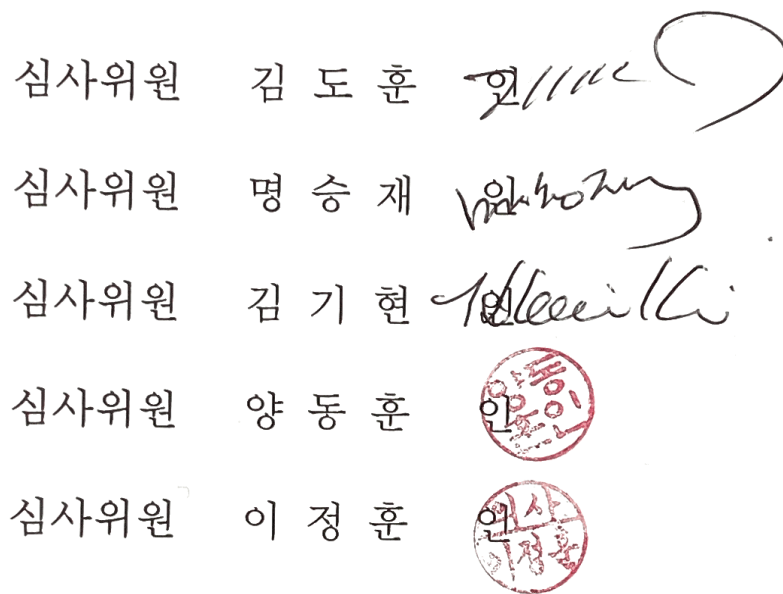 심사위원 김 도 훈 인
심사위원 명 승 재 인
심사위원 김 기 현 인
심사위원 양 동 훈 인
심사위원 이 정 훈 인